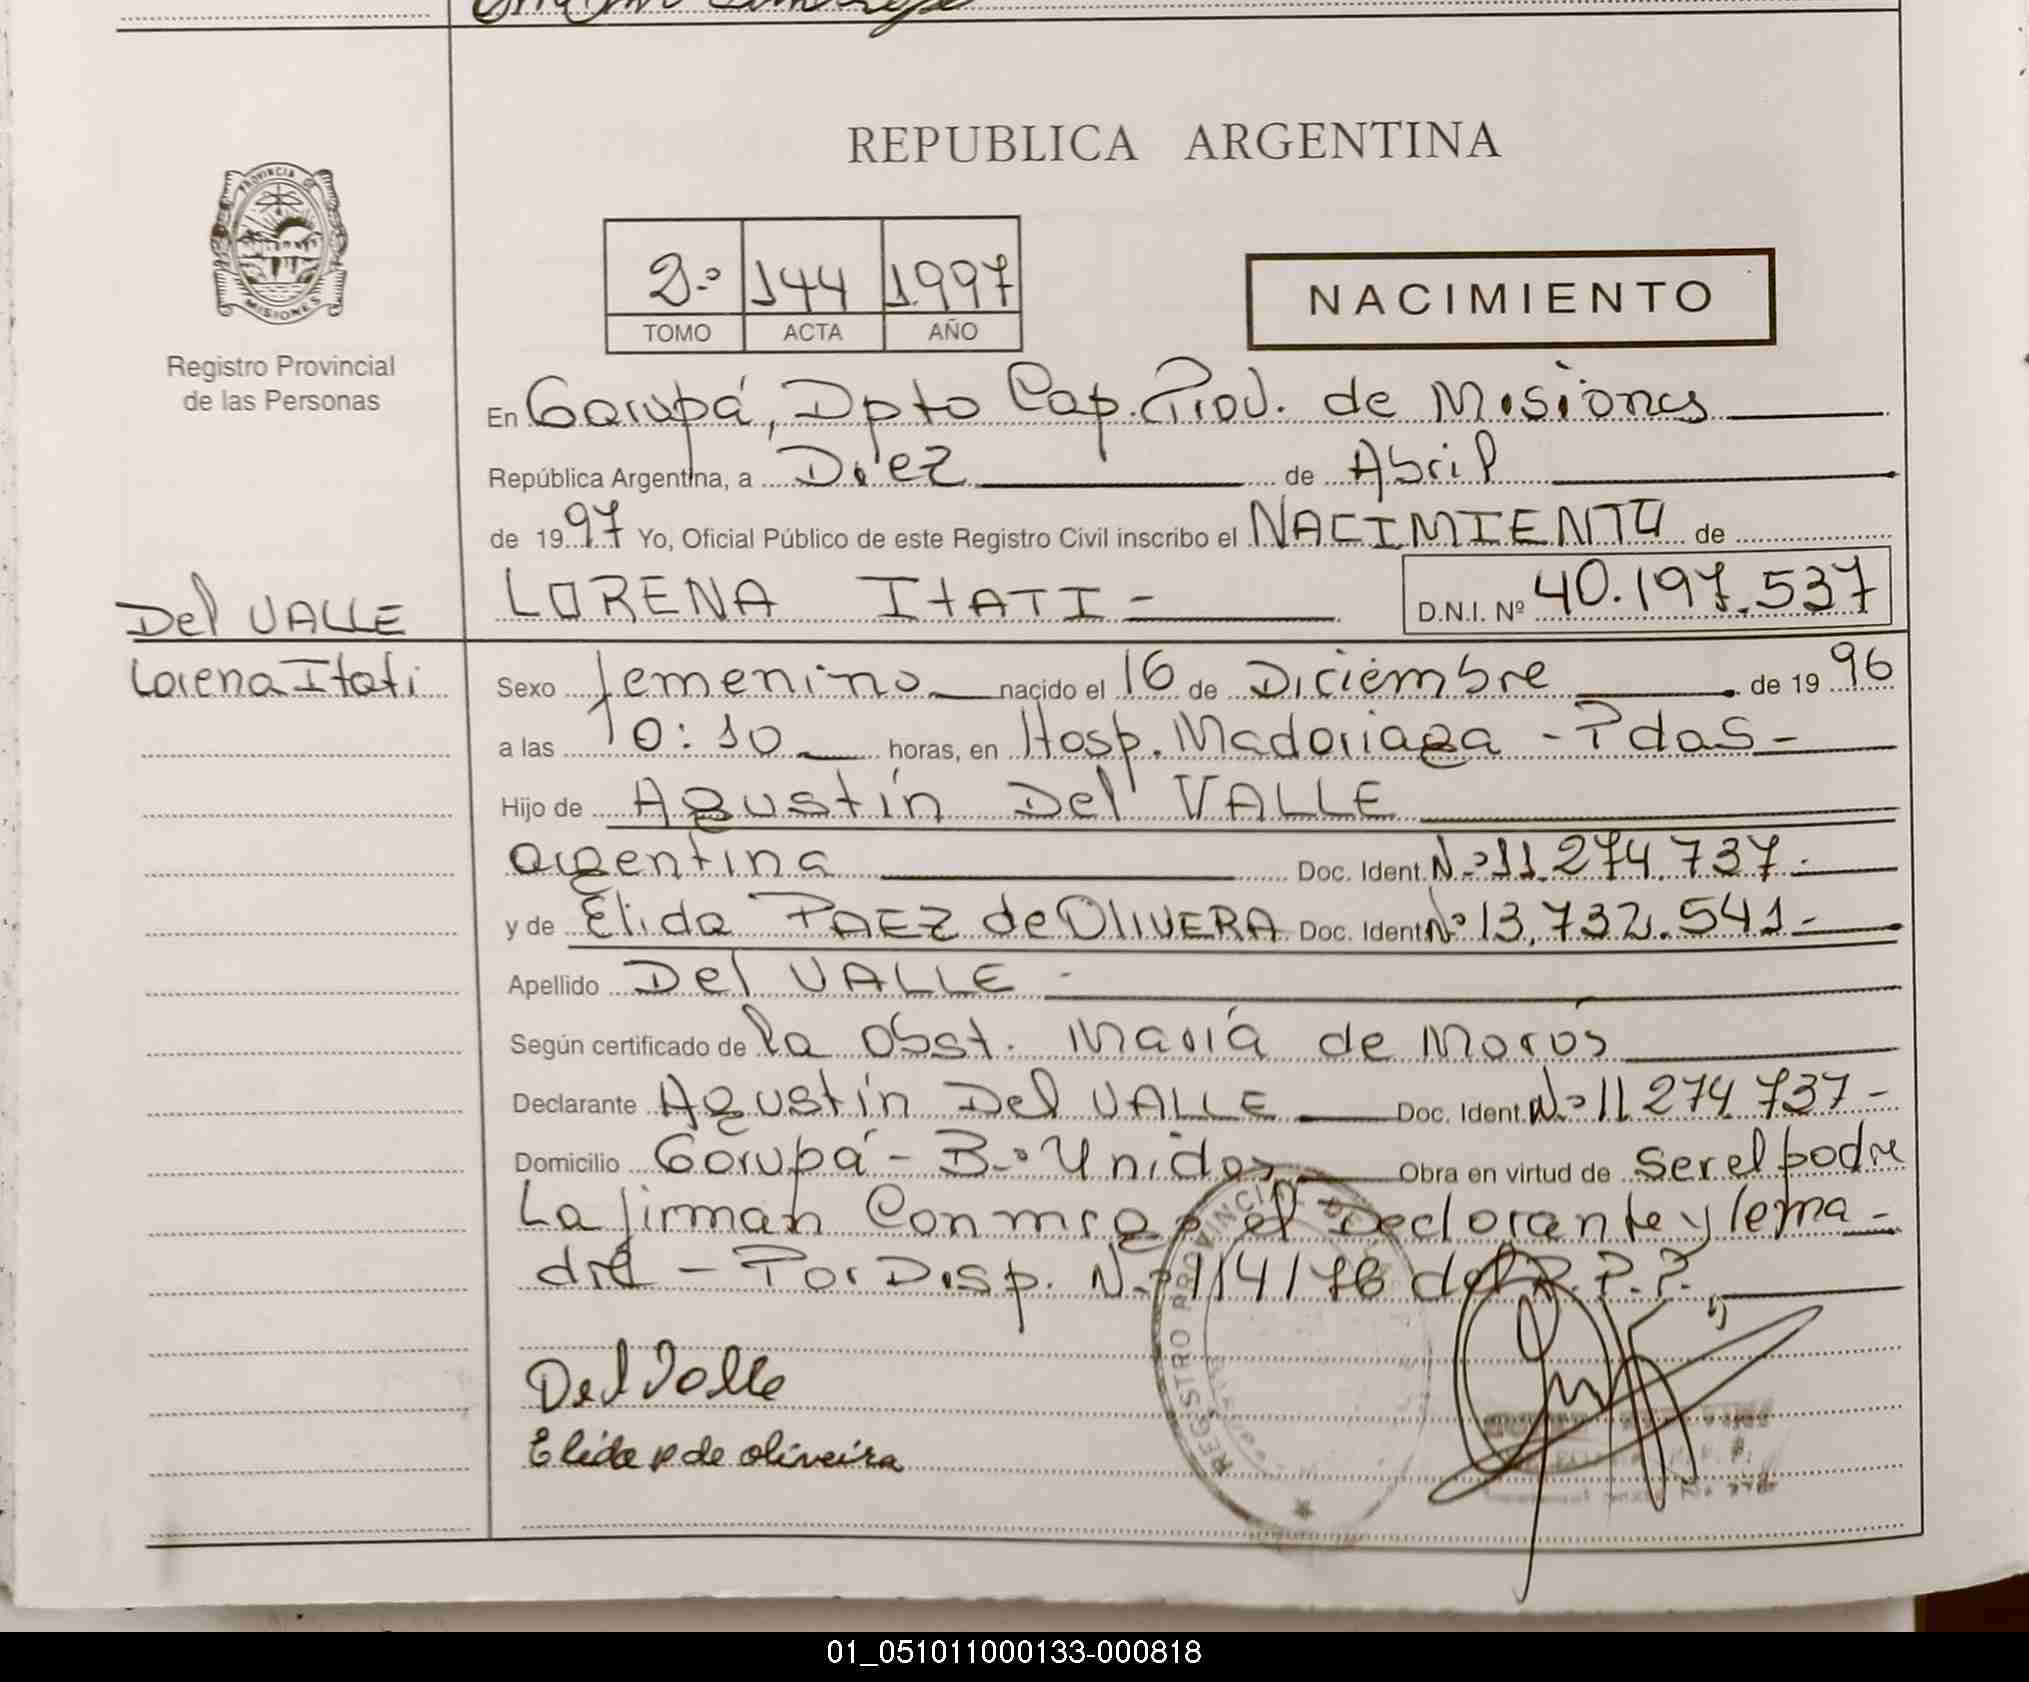 REPUBLICA ARGENTINA
PROVINCIA DE
MISIONES
Registro Provincial
de las Personas
2.º 144 1997
TOMO ACTA AÑO
NACIMIENTO
En Garupá, Dpto Cap. Prov. de Misiones
República Argentina, a Diez de Abril
de 1997 Yo, Oficial Público de este Registro Civil inscribo el NACIMIENTO de
LORENA ITATI - D.N.I. Nº 40.197.537
Del VALLE
Lorena Itati
Sexo femenino nacido el 16 de Diciembre de 1996
a las 10:10 horas, en Hosp. Madariaga - Pdas -
Hijo de Agustín Del VALLE
argentina Doc. Ident. Nº 11.274.737.
y de Elida PAEZ de OLIVERA Doc. Ident. Nº 13.732.541 -
Apellido Del VALLE -
Según certificado de la Obst. María de Moros
Declarante Agustín Del VALLE Doc. Ident. Nº 11 274 737 -
Domicilio Garupá - B.º Unidos Obra en virtud de ser el padre
La firman Conmigo el Declarante y la ma -
dre - Por Disp. N.º 114/76 del R.P.P.
Del Valle
Elida p de oliveira
REGISTRO PROVINCIAL DE
01_051011000133-000818